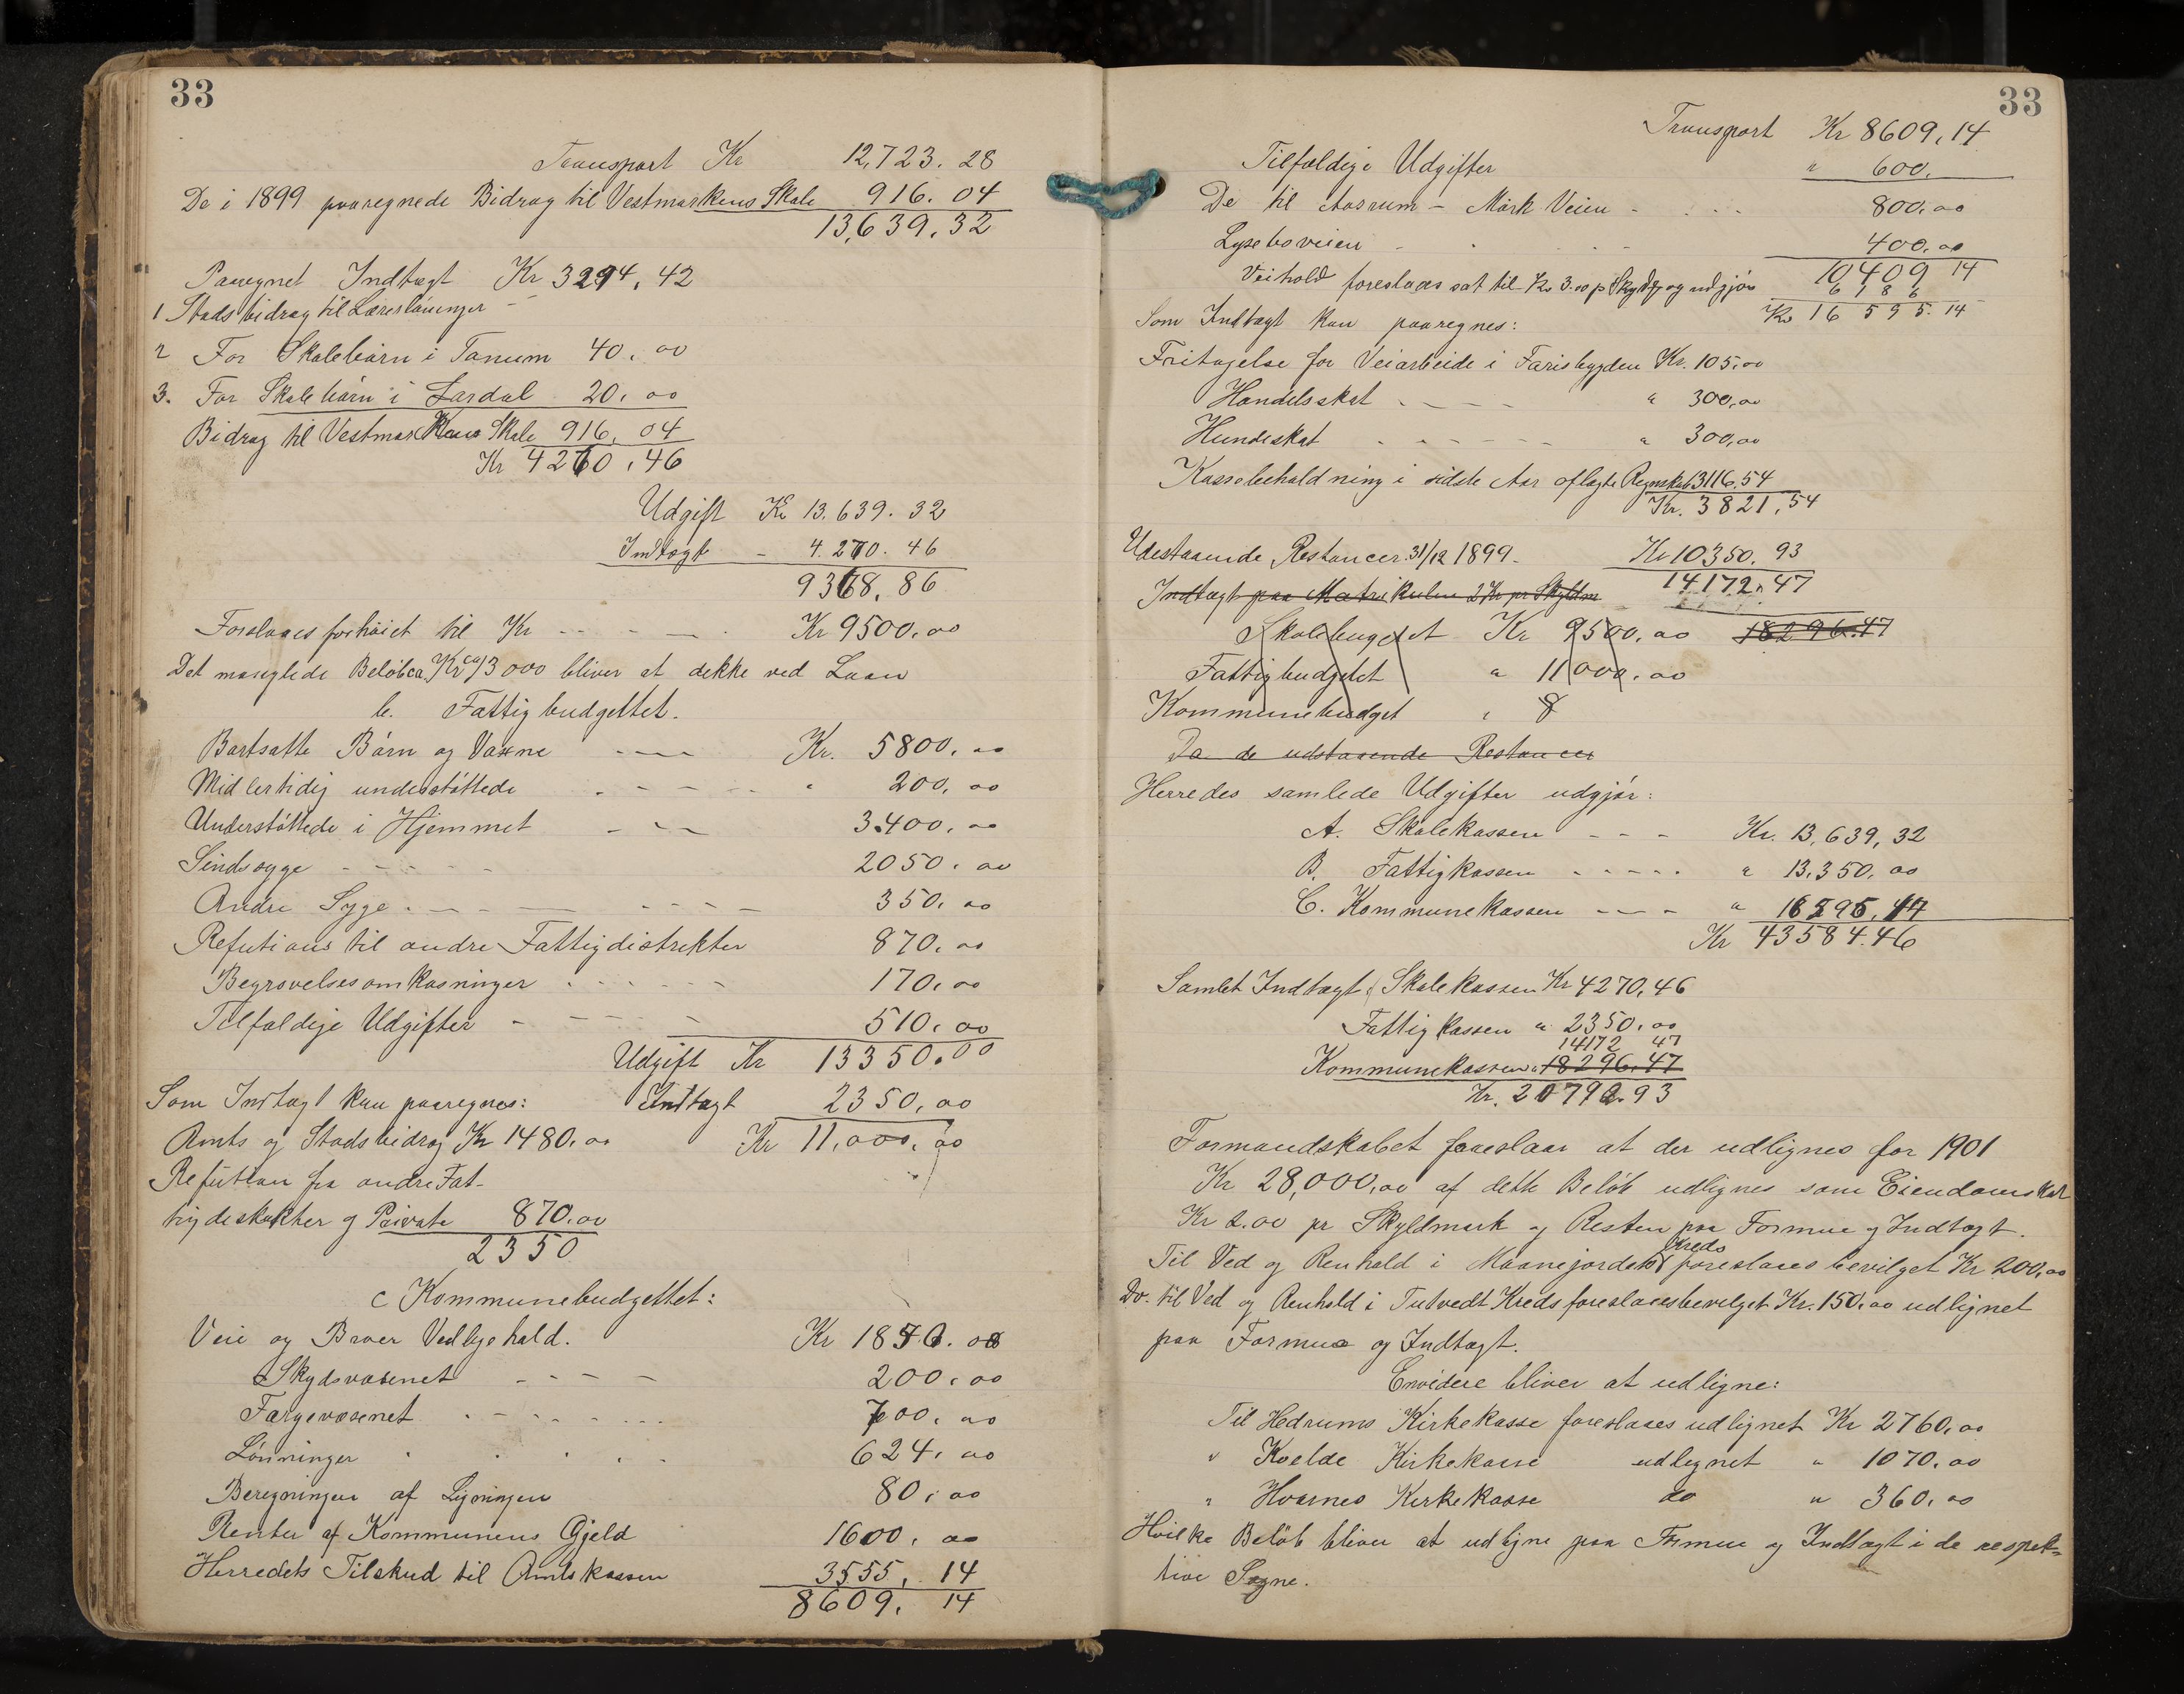 33
Transport Kr 12,723. 28
De i 1899 paaregnede Bidrag til Vestmarkens Skole 916. 04
13,639. 32
Paaregnet Indtægt Kr 3294, 42
1 Stadsbidrag til Læreslöninger
2 For Skolebörn i Tanum 40. 00
3. For Skolebörn i Lardal 20. 00
Bidrag til Vestmarkens Skole 916. 04
Kr 4270, 46
Udgift Kr 13.639. 32
Indtægt - 4.270. 46
9368. 86
Foreslaaes forhöiet til Kr Kr 9500,00
Det manglede Beløb ca Kr 3000 bliver at dekke ved Laan
b. Fattigbudgettet.
Bortsatte Börn og Voxne Kr. 5800. 00
Midlertidig understöttede " 200. 00
Understöttede i Hjemmet 3.400. 00
Sindssyge 2050. 00
Andre Syge 350. 00
Refutions til andre Fattigdistrikter 870. 00
Begravelsesomkosninger 170. 00
Tilfældige Udgifter 510. 00
Udgift Kr 13350.00
Som Indtægt kan paaregnes: Indtægt 2350,00
Amts og Stadsbidrag Kr 1480.00 Kr 11,000,00
Refution fra andre Fat-
tigdeskrkter og Private 870.00
2350
C Kommunebudgettet:
Veie og Broer Vedligehold. Kr
Skydsvæsenet 200. 00
Færgevæsenet 700. 00
Lönninger 624. 00
Beregningen af Ligningen 80. 00
Renter af Kommunens Gjeld 1600. 00
Herredets Tilskud til Amtskassen 3555. 14
8609. 14
33
Transport Kr 8609,14
Tilfældige Udgifter " 600.
De til Aasrum - Mørk Veien 800.00
Lyseboveien 400.00
10409 14
Veihold foreslaaes sat til Kr 3.00 p Skyldm og udgjör 6186
Kr 16595.14
Som Indtægt kan paaregnes:
Fritagelse for Veiarbeide i Farisbygden Kr. 105.00
Handelsskat " 300,00
Hundeskat " 300,00
Kassebeholdning i sidste Aar aflagte Regnskab 3116.54
Kr. 3821,54
Udestaaende Restancer 31/12 1899. Kr 10350. 93
14172. 47
Indtægt paa Matrikulen 2 Kr pr Skyldm
Skolebugetet Kr 9500,00 18296.47
Fattigbudgetet " 11000.00
Kommunebudget " 8
Da de udstaaende Restancer
Herredes samlede Udgifter udgjør:
A. Skolekassen Kr. 13,639,32
B. Fattigkassen " 13.350.00
C. Kommunekassen "
Kr 43584.46
Samlet Indtægt: Skolekassen Kr 4270,46
Fattigkassen " 2350.00
14172 47
Kommunekassen " 18296.47
Kr. 20792.93
Formandskabet foreslaar at der udlignes for 1901
Kr 28,000,00 af dette Beløb udlignes som Eiendomsskat
Kr 2.00 pr Skyldmark og Resten paa Formue og Indtægt.
Til Ved og Renhold i Maanejordets Kreds foreslaaes bevilget Kr 200,00
Do. til Ved og Renhold i Tutvedt Kreds foreslaaes bevilget Kr. 150.00 udlignet
paa Formue og Indtægt.
Envidere bliver at udligne:
Til Hedrums Kirkekasse foreslaaes udlignet Kr 2760.00
" Kvelde Kirkekasse udlignet " 1070.00
" Hvarnes Kirkekasse do " 360.00
Hvilke Beløb bliver at udligne paa Formue og Indtægt i de respek-
tive Sogne.